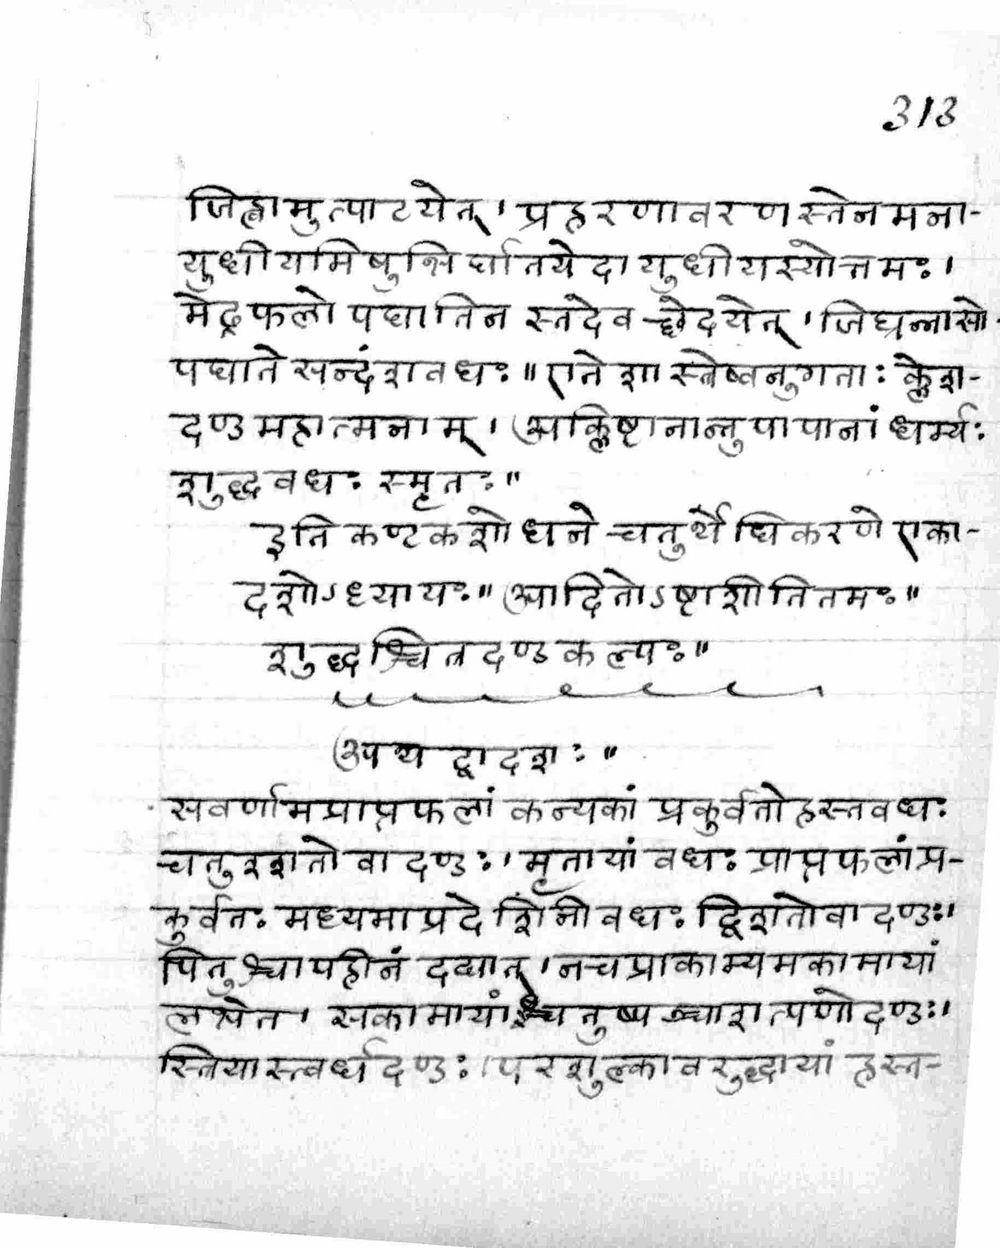 313
जिह्वामुत्पाटयेत् । प्रहरणावरणस्तेनमना-
युधीयमिषुभिर्घातयेदायुधीयस्योत्तमः ।
मेढ्रफलोपघातिन स्तदेव च्छेदयेत् । जिघ्रन्नासो-
पघाते सन्दंशवधः ॥ एते शास्त्रेष्वनुगताः क्लेश-
दण्ड महात्मनाम् । अक्लिष्टानान्तु पापानां धर्म्यः
शुद्धवधः स्मृतः ॥
इति कण्टकशोधने चतुर्थेधिकरणे एका-
दशोऽध्यायः ॥ आदितोऽष्टाशीतितमः ॥
शुद्धश्चित्रदण्डकल्पः ॥
अथ द्वादशः ॥
सवर्णामप्राप्तफलां कन्यकां प्रकुर्वतो हस्तवधः
चतुश्शतो वा दण्डः । मृतायां वधः प्राप्तफलां प्र-
कुर्वतः मध्यमाप्रदेशिनीवधः द्विशतो वा दण्डः ।
पितुश्चापहीनं दद्यात् । न च प्राकाम्यमकामायां
लभेत । सकामायां चतुष्पञ्चाशत्पणो दण्डः ।
स्त्रियास्त्वर्धदण्डः । परशुल्कावरुद्धायां हस्त-